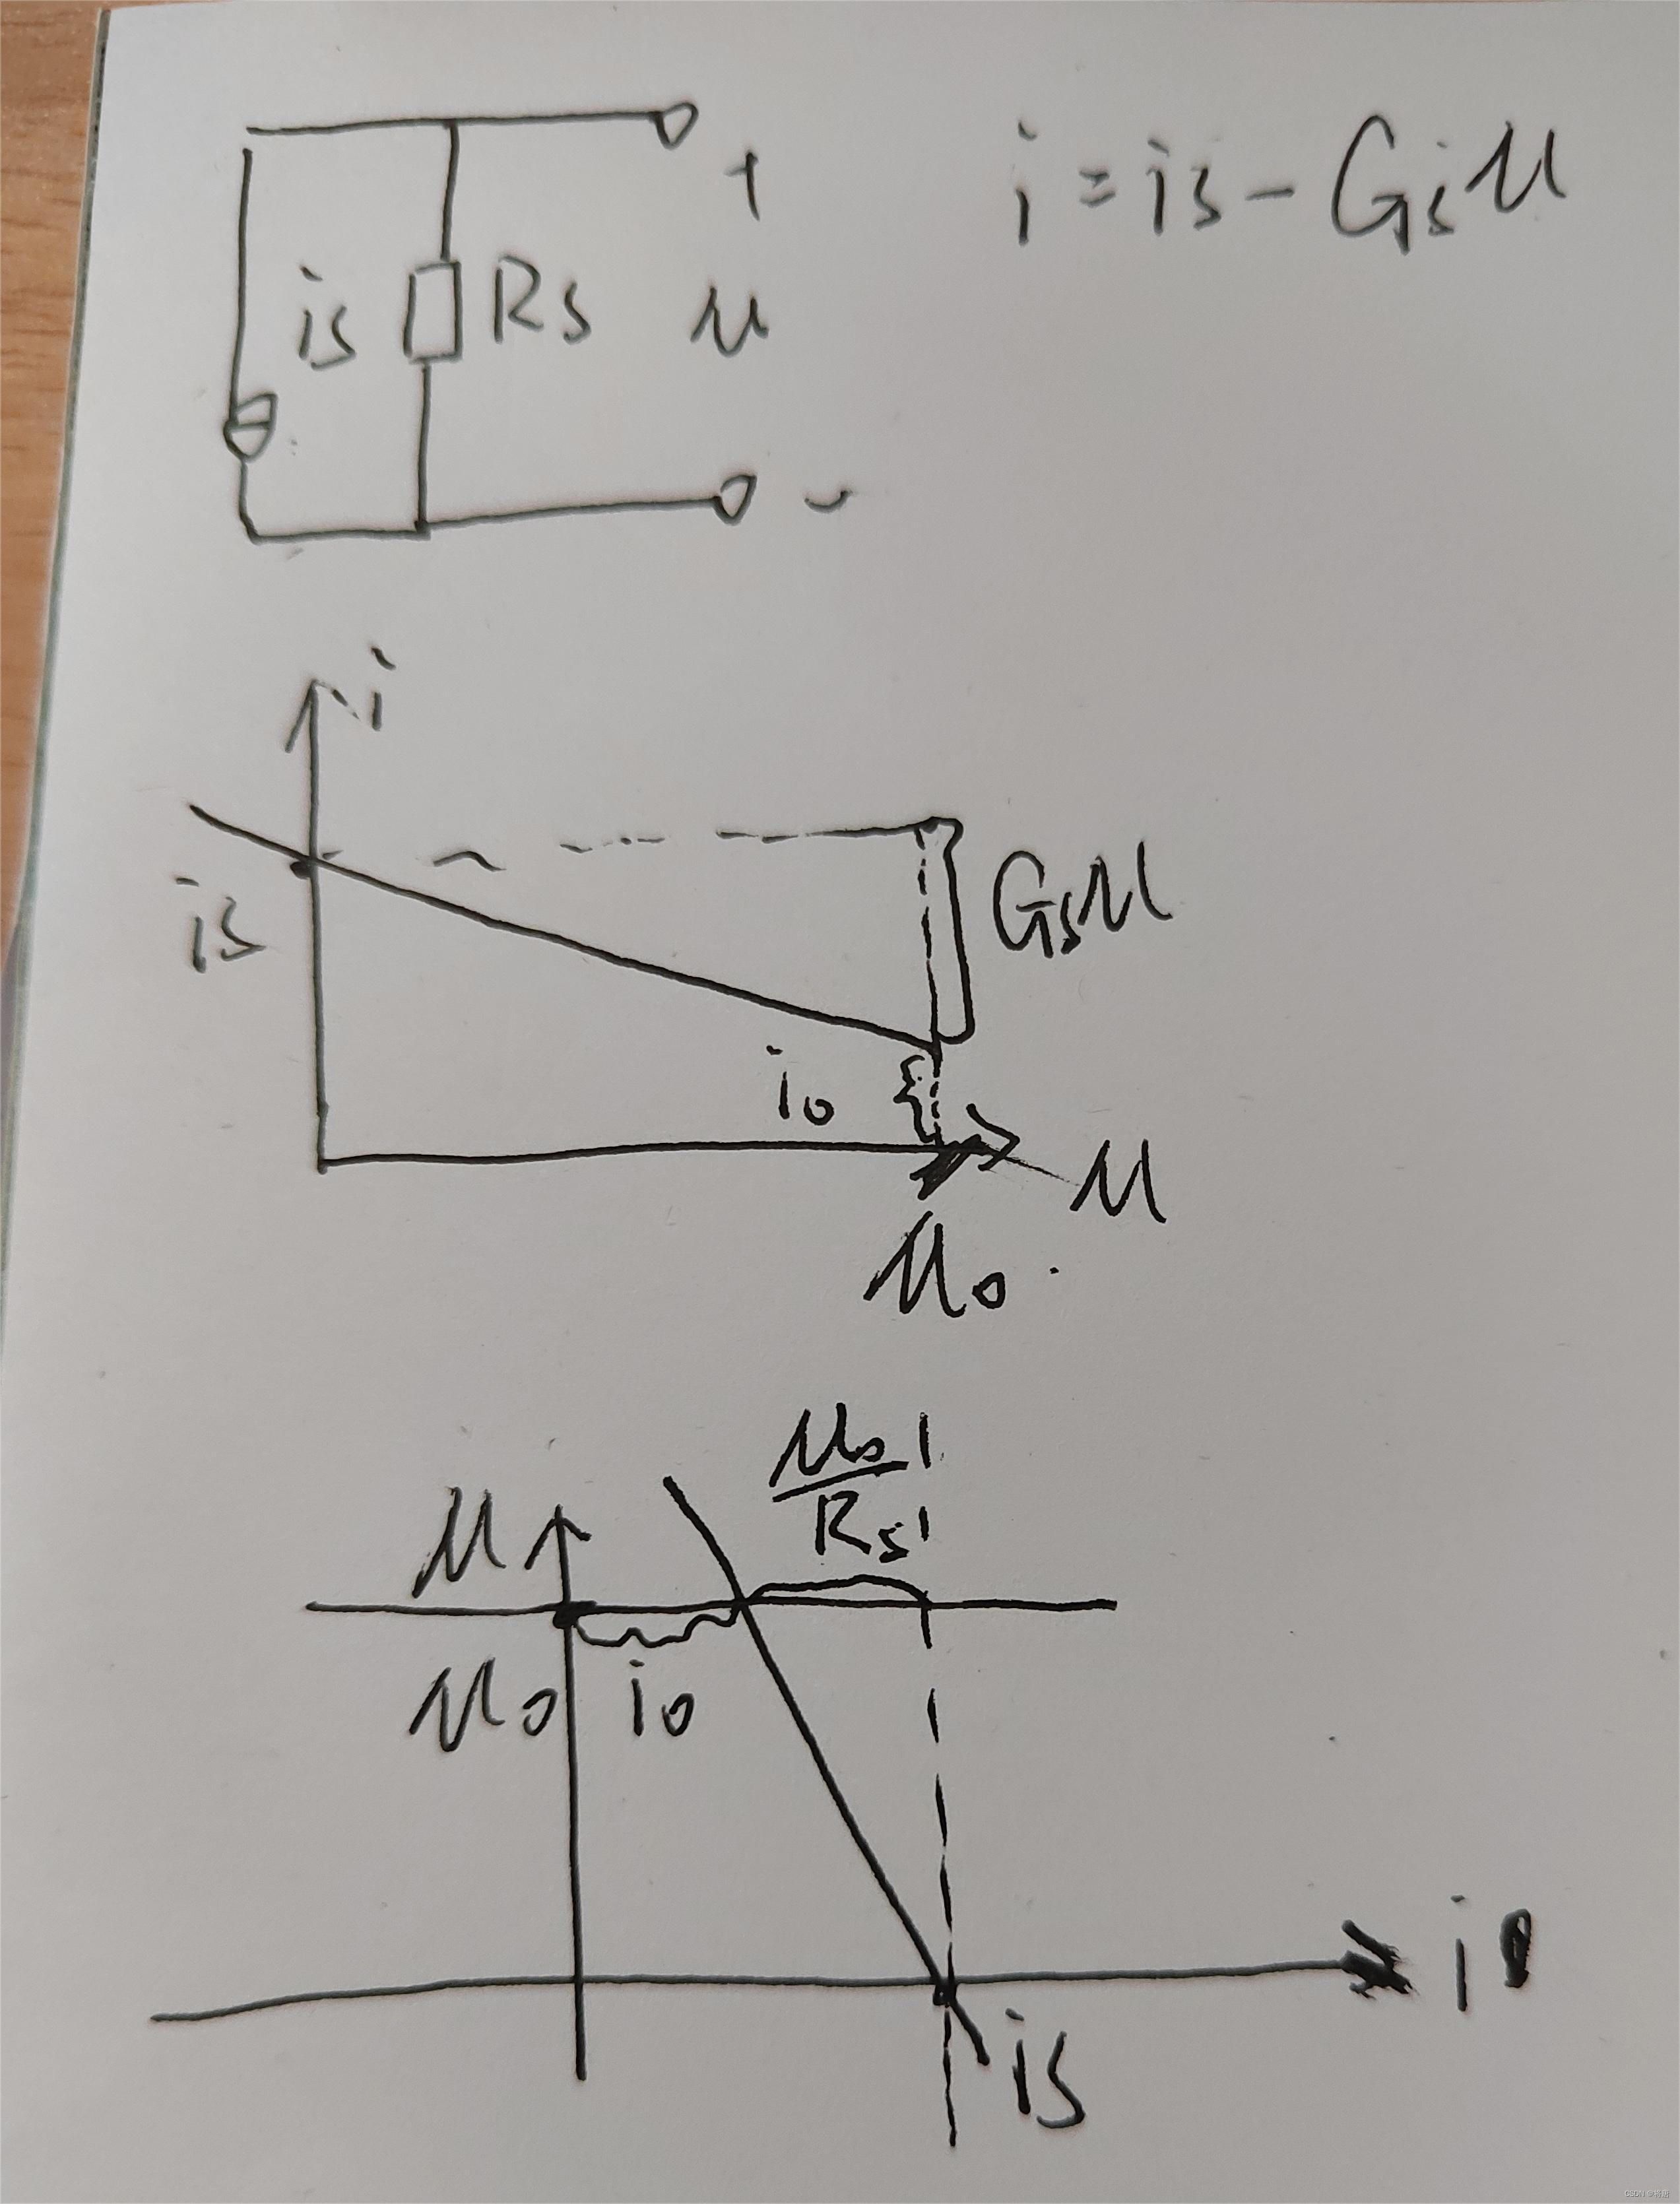 +
i = is - Gsu
is Rs u
-
i
is
Gsu
i0
u
u0
u0
Rs
u
u0 i0
i
is